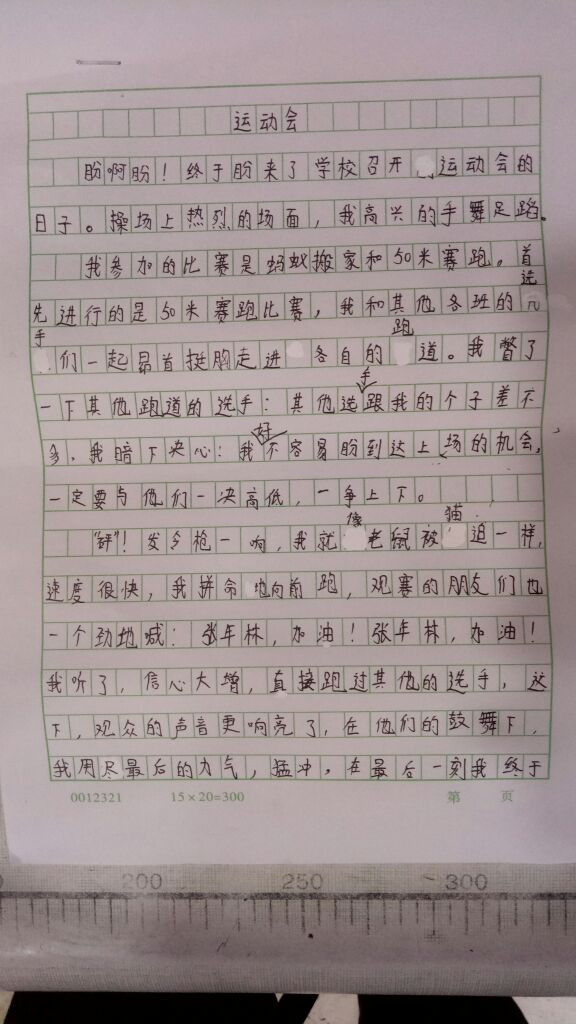 运动会
盼啊盼！终于盼来了学校召开运动会的
日子。操场上热烈的场面，我高兴的手舞足蹈。
我参加的比赛是蚂蚁搬家和50米赛跑。首
先进行的是50米赛跑比赛，我和其他各班的选
手们一起昂首挺胸走进各自的跑道。我瞥了
一下其他跑道的选手：其他选手跟我的个子差不
多，我暗下决心：我好不容易盼到达上场的机会，
一定要与他们一决高低，一争上下。
"砰"！发令枪一响，我就像老鼠被猫追一样，
速度很快，我拼命地向前跑，观赛的朋友们也
一个劲地喊：张年林，加油！张年林，加油！
我听了，信心大增，直接跑过其他的选手，这
下，观众的声音更响亮了，在他们的鼓舞下，
我用尽最后的力气，猛冲，在最后一刻我终于
0012321 15×20=300 第 页
200 250 300